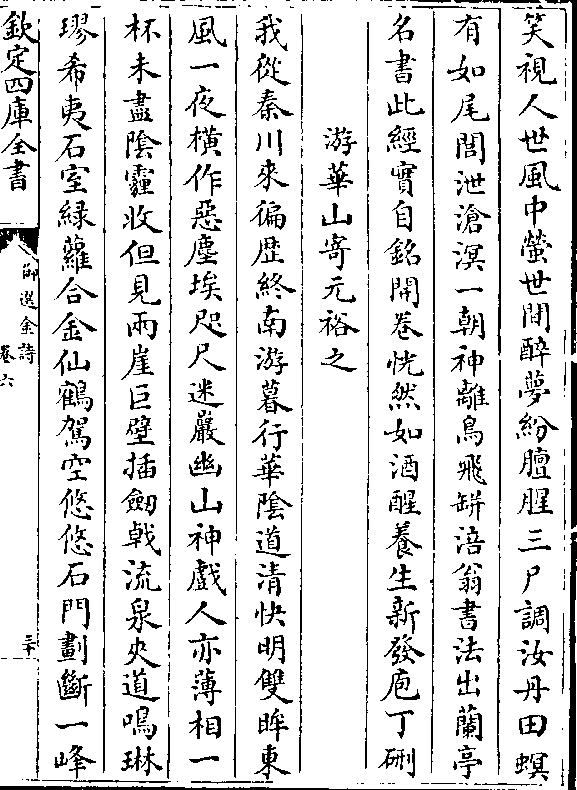 笑視人世風中螢世間醉夢紛膻腥三尸調汝丹田螟
有如尾閭泄滄溟一朝神離鳥飛缾涪翁書法出蘭亭
名書此經實自銘開卷恍然如酒醒養生新發庖丁硎
游華山寄元裕之
我從秦川來徧歴終南游暮行華陰道清快明雙眸東
風一夜横作惡塵埃咫尺迷巖幽山神戲人亦薄相一
杯未盡陰霾收但見兩崖巨壁插劒㦸流泉夾道鳴琳
璆希夷石室緑蘿合金仙鶴駕空悠悠石門劃斷一峰
欽定四庫全書
御選金詩
卷六
三十